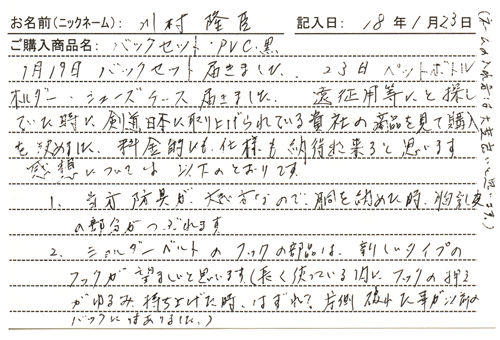 お名前(ニックネーム): 川村 隆臣 記入日: 18年1月23日
ご購入商品名: バックセット・PVC.黒
1月19日 バックセット届きました. 23日 ペットボトル
ホルダー・シューズケース届きました. 遠征用等にと探し
ていた時に, 剣道日本に取り上げられている貴社の商品を見て購入
を決めました. 料金的にも仕様も納得出来ると思います
感想については 以下のとおりです.
1. 当方防具が, 大きい方なので. 胴を納めた時, 胸乳皮
の部分がつぶれます
2. ショルダーベルトのフックの部品は, 新しいタイプの
フックが望ましいと思います(長く使っている内に, フックの押え
がゆるみ 持ち上げた時, はずれて, 片側破れた事が以前の
バックにはありました.)
(ネームの入れ方は大変良いと思います.)